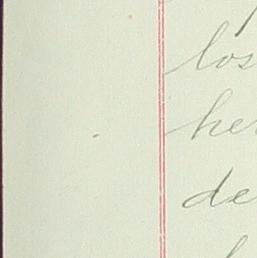 los
her
de